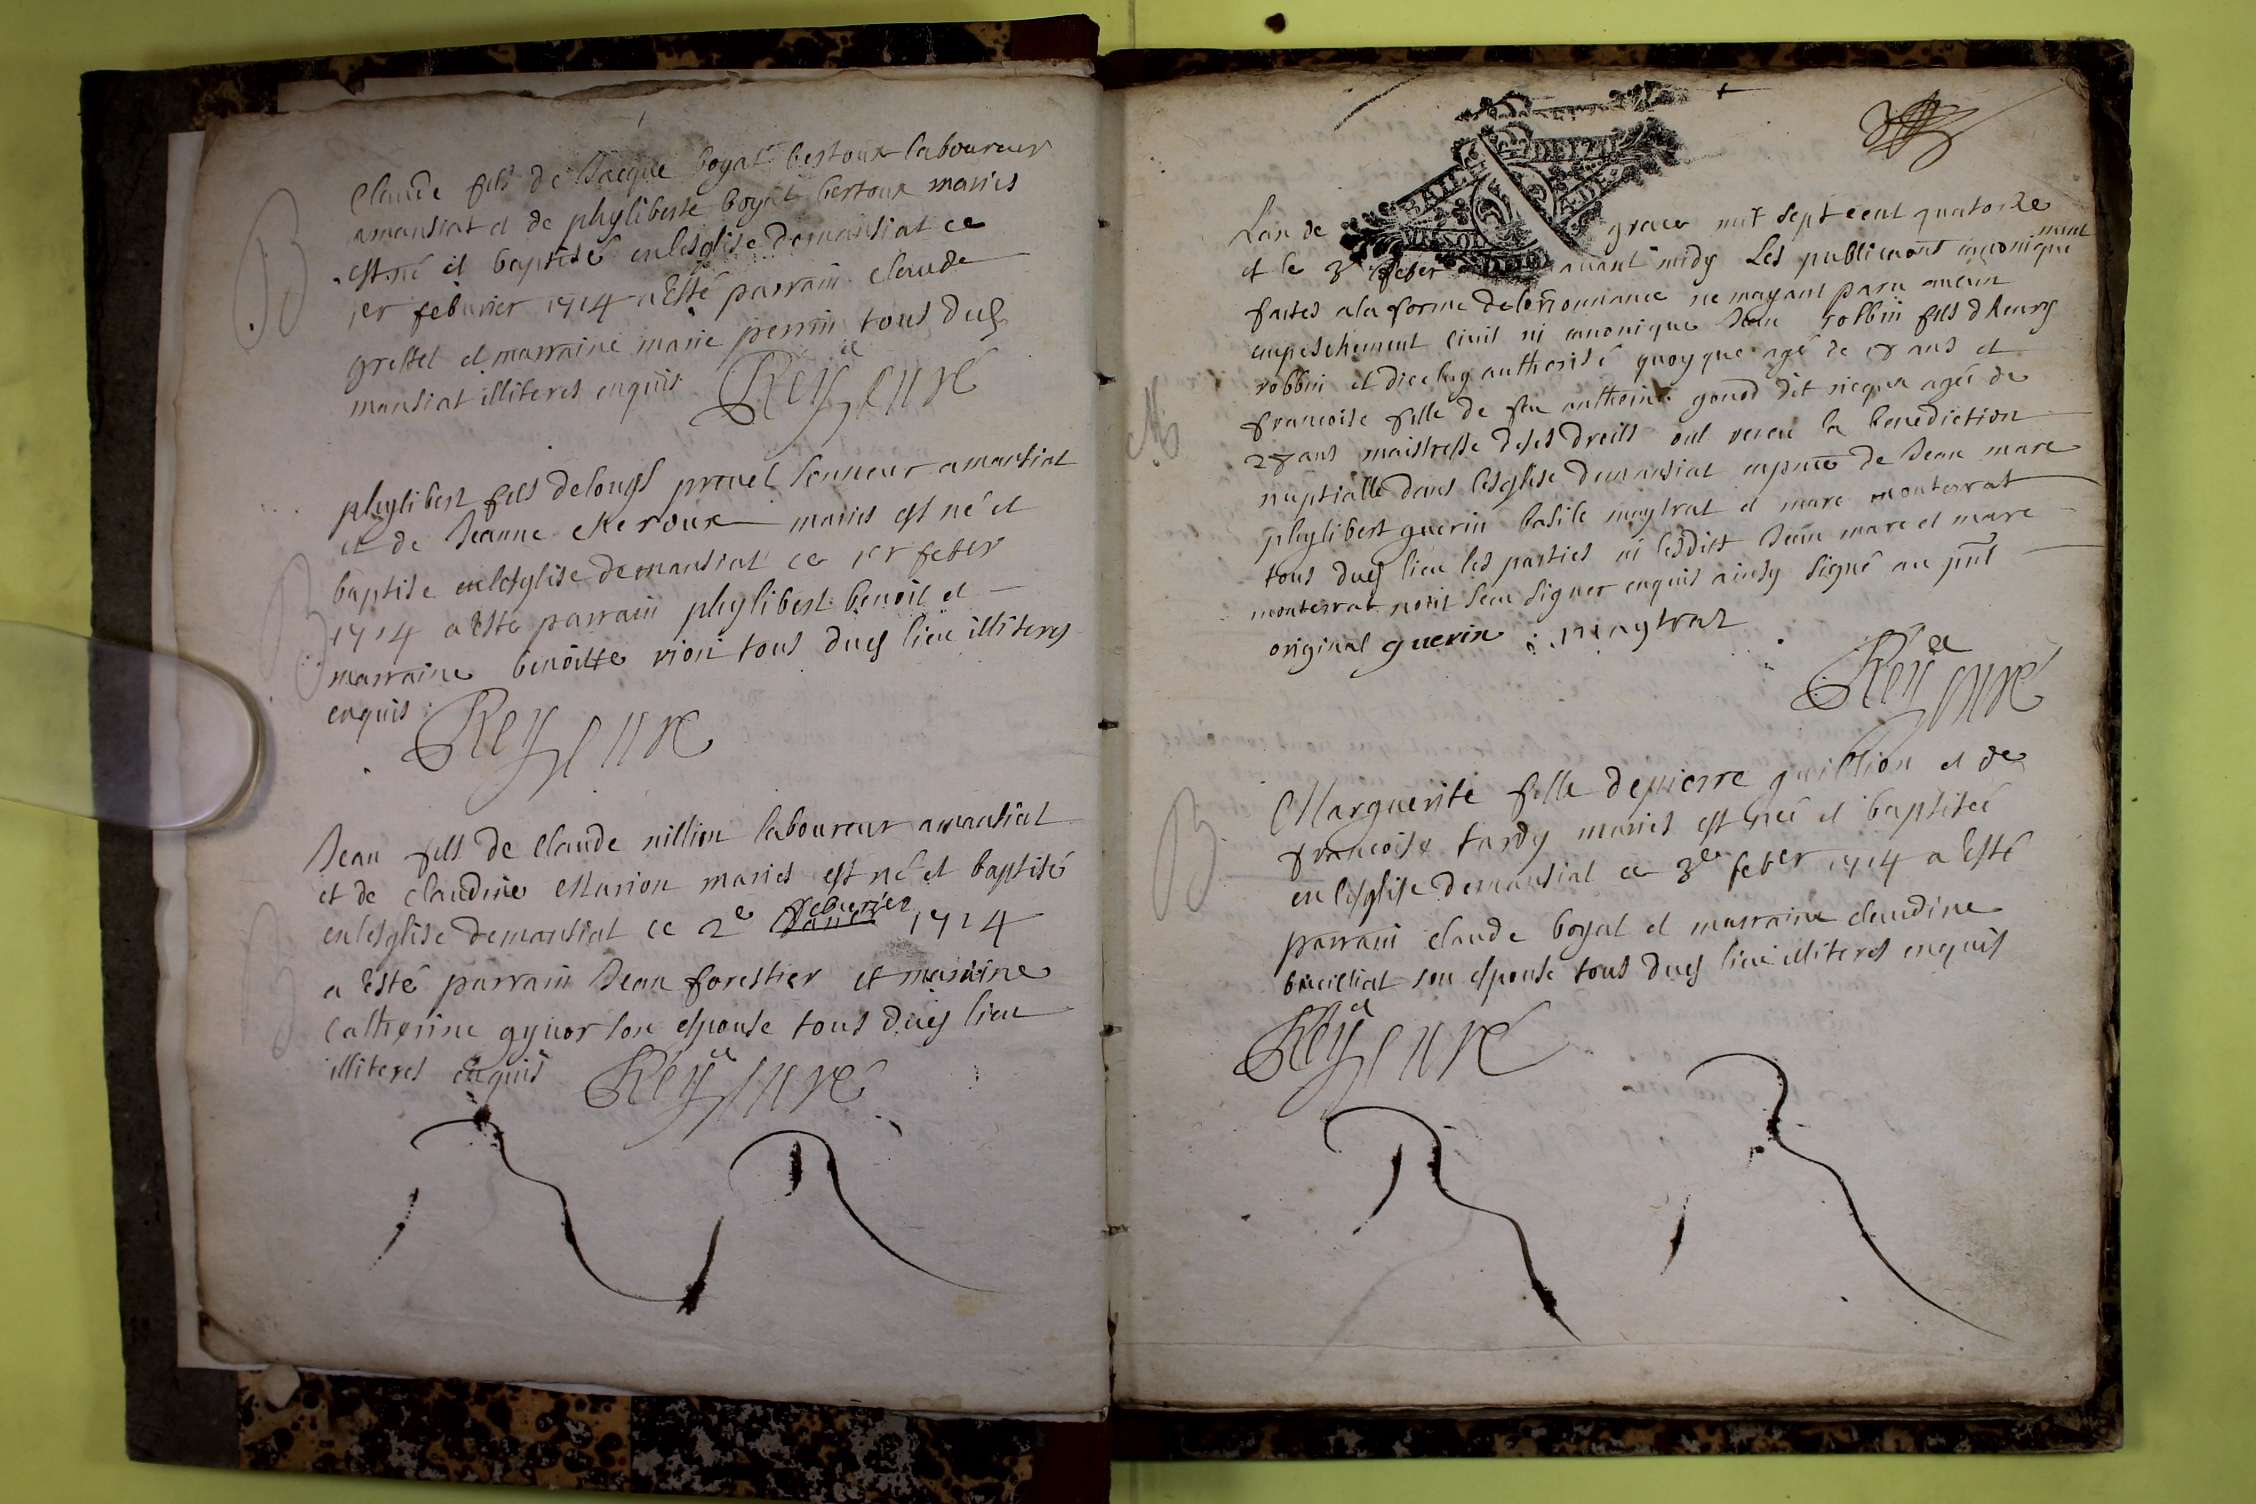 B
Claude fils de Jacque boyat bertoux laboureur
amansiat et de phyliberte boyat bertoux mariés
est né et baptisé enlesglise demansiat ce
1er febvrier 1714 a Esté parrain claude
greffet et marraine marie perrin tous duds
mansiat illiteres enquis Rey curé
B
phylibert fils delouys prevel sonneur amansiat
et de Jeanne cheroux mariés est né et
baptisé enlesglise demansiat ce 1er feber
1714 a esté parrain phylibert benoit et
marraine benoitte rion tous duds lieu illiteres
enquis
Rey curé
B
Jean fils de claude nillion laboureur amansiat
et de claudine Marion mariés est né et baptisé
enlesglise demansiat ce 2e febvrier 1714
a Esté parrain Jean forestier et marraine
catherine gyuor son espouse tous duds lieu
illiteres enquis Rey curé
Lan de grace mil sept cent quatorze
et le 3e feber avant midy Les publicaons canonique
ment
M
faites ala forme delordonnance ne mayant paru aucun
empeschement civil ni canonique Jean robbin fils dheury
robbin et diceluy authorisé quoyque agé de ans et
francoise fille de feu anthoine gonod dit ricque agée de
ans maistresse deses droits ont receu la benediction
nuptialle dans lesglise demansiat en pnce de Jean marc
phylibert guerin basile maytrat et marc monterrat
tous duds lieu les parties ni lesdits Jean marc et marc
monterrat nont sceu signer enquis ainsy signé au pnt
original guerin : maytrat
Rey curé
B
Marguerite fille depierre guillion et de
francoise tardy mariés est née et baptisée
en lesglise demansiat ce 3e feber 1714 a Esté
parrain claude boyat et marraine claudine
brevilliat son espouse tous duds lieu illiteres enquis
Rey curé